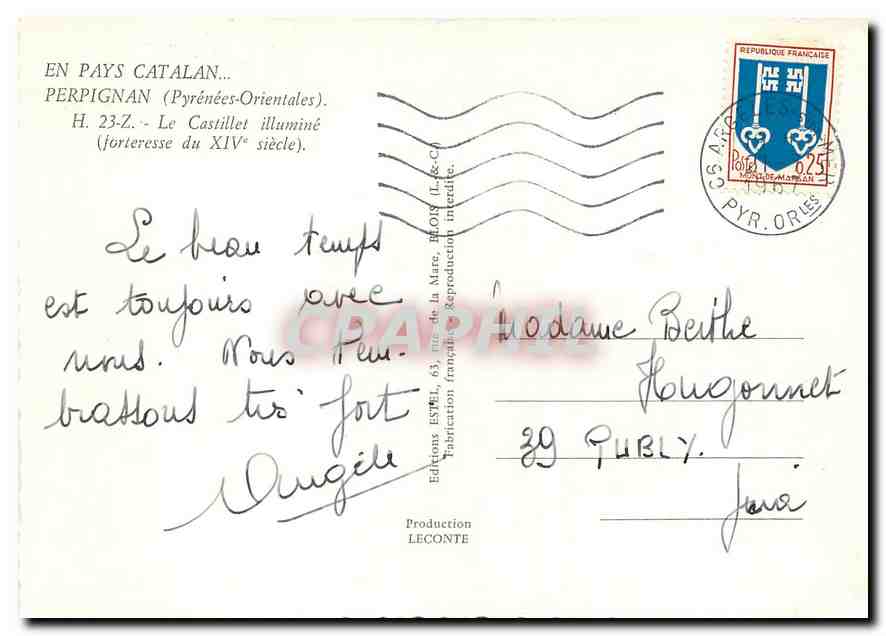 EN PAYS CATALAN...
PERPIGNAN (Pyrénées-Orientales).
H. 23-Z. - Le Castillet illuminé
(forteresse du XIVe siècle).
Le beau temps
est toujours avec
nous. Nous t'em-
brassons très fort
Angèle
Editions ESTEL, 63, rue de la Mare, BLOIS (L.-&-C.)
Fabrication française - Reproduction interdite.
Production
LECONTE
REPUBLIQUE FRANÇAISE
Postes 0,25
MONT-DE-MARSAN
66 ARGELES
1967
PYR. ORLES
Madame Berthe
Hugonnet
39 PUBLY.
Jura
CPAPHIL